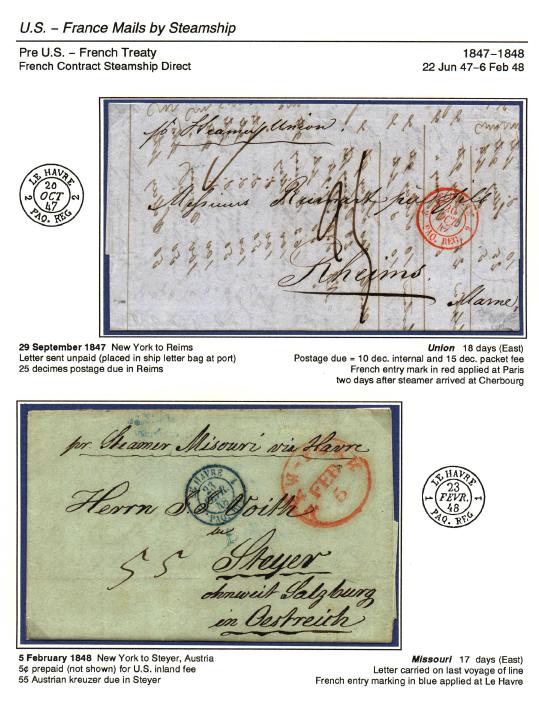 U.S. – France Mails by Steamship
Pre U.S. – French Treaty
French Contract Steamship Direct
1847–1848
22 Jun 47–6 Feb 48
pr Steamer Union.
LE HAVRE
2 20 2
OCT
47
PAQ. REG
Messieurs Ruinart père & fils
25
PAQ. REG.
Rheims.
Marne
29 September 1847 New York to Reims
Letter sent unpaid (placed in ship letter bag at port)
25 decimes postage due in Reims
Union 18 days (East)
Postage due = 10 dec. internal and 15 dec. packet fee
French entry mark in red applied at Paris
two days after steamer arrived at Cherbourg
pr. Steamer Missouri via Havre
LE HAVRE
23
PAQ.
FEB
5
Herrn
Voith
Steyer
55
ohnweit Salzburg
in Oestreich
LE HAVRE
1 23 1
FEVR.
48
PAQ. REG
5 February 1848 New York to Steyer, Austria
5¢ prepaid (not shown) for U.S. inland fee
55 Austrian kreuzer due in Steyer
Missouri 17 days (East)
Letter carried on last voyage of line
French entry marking in blue applied at Le Havre